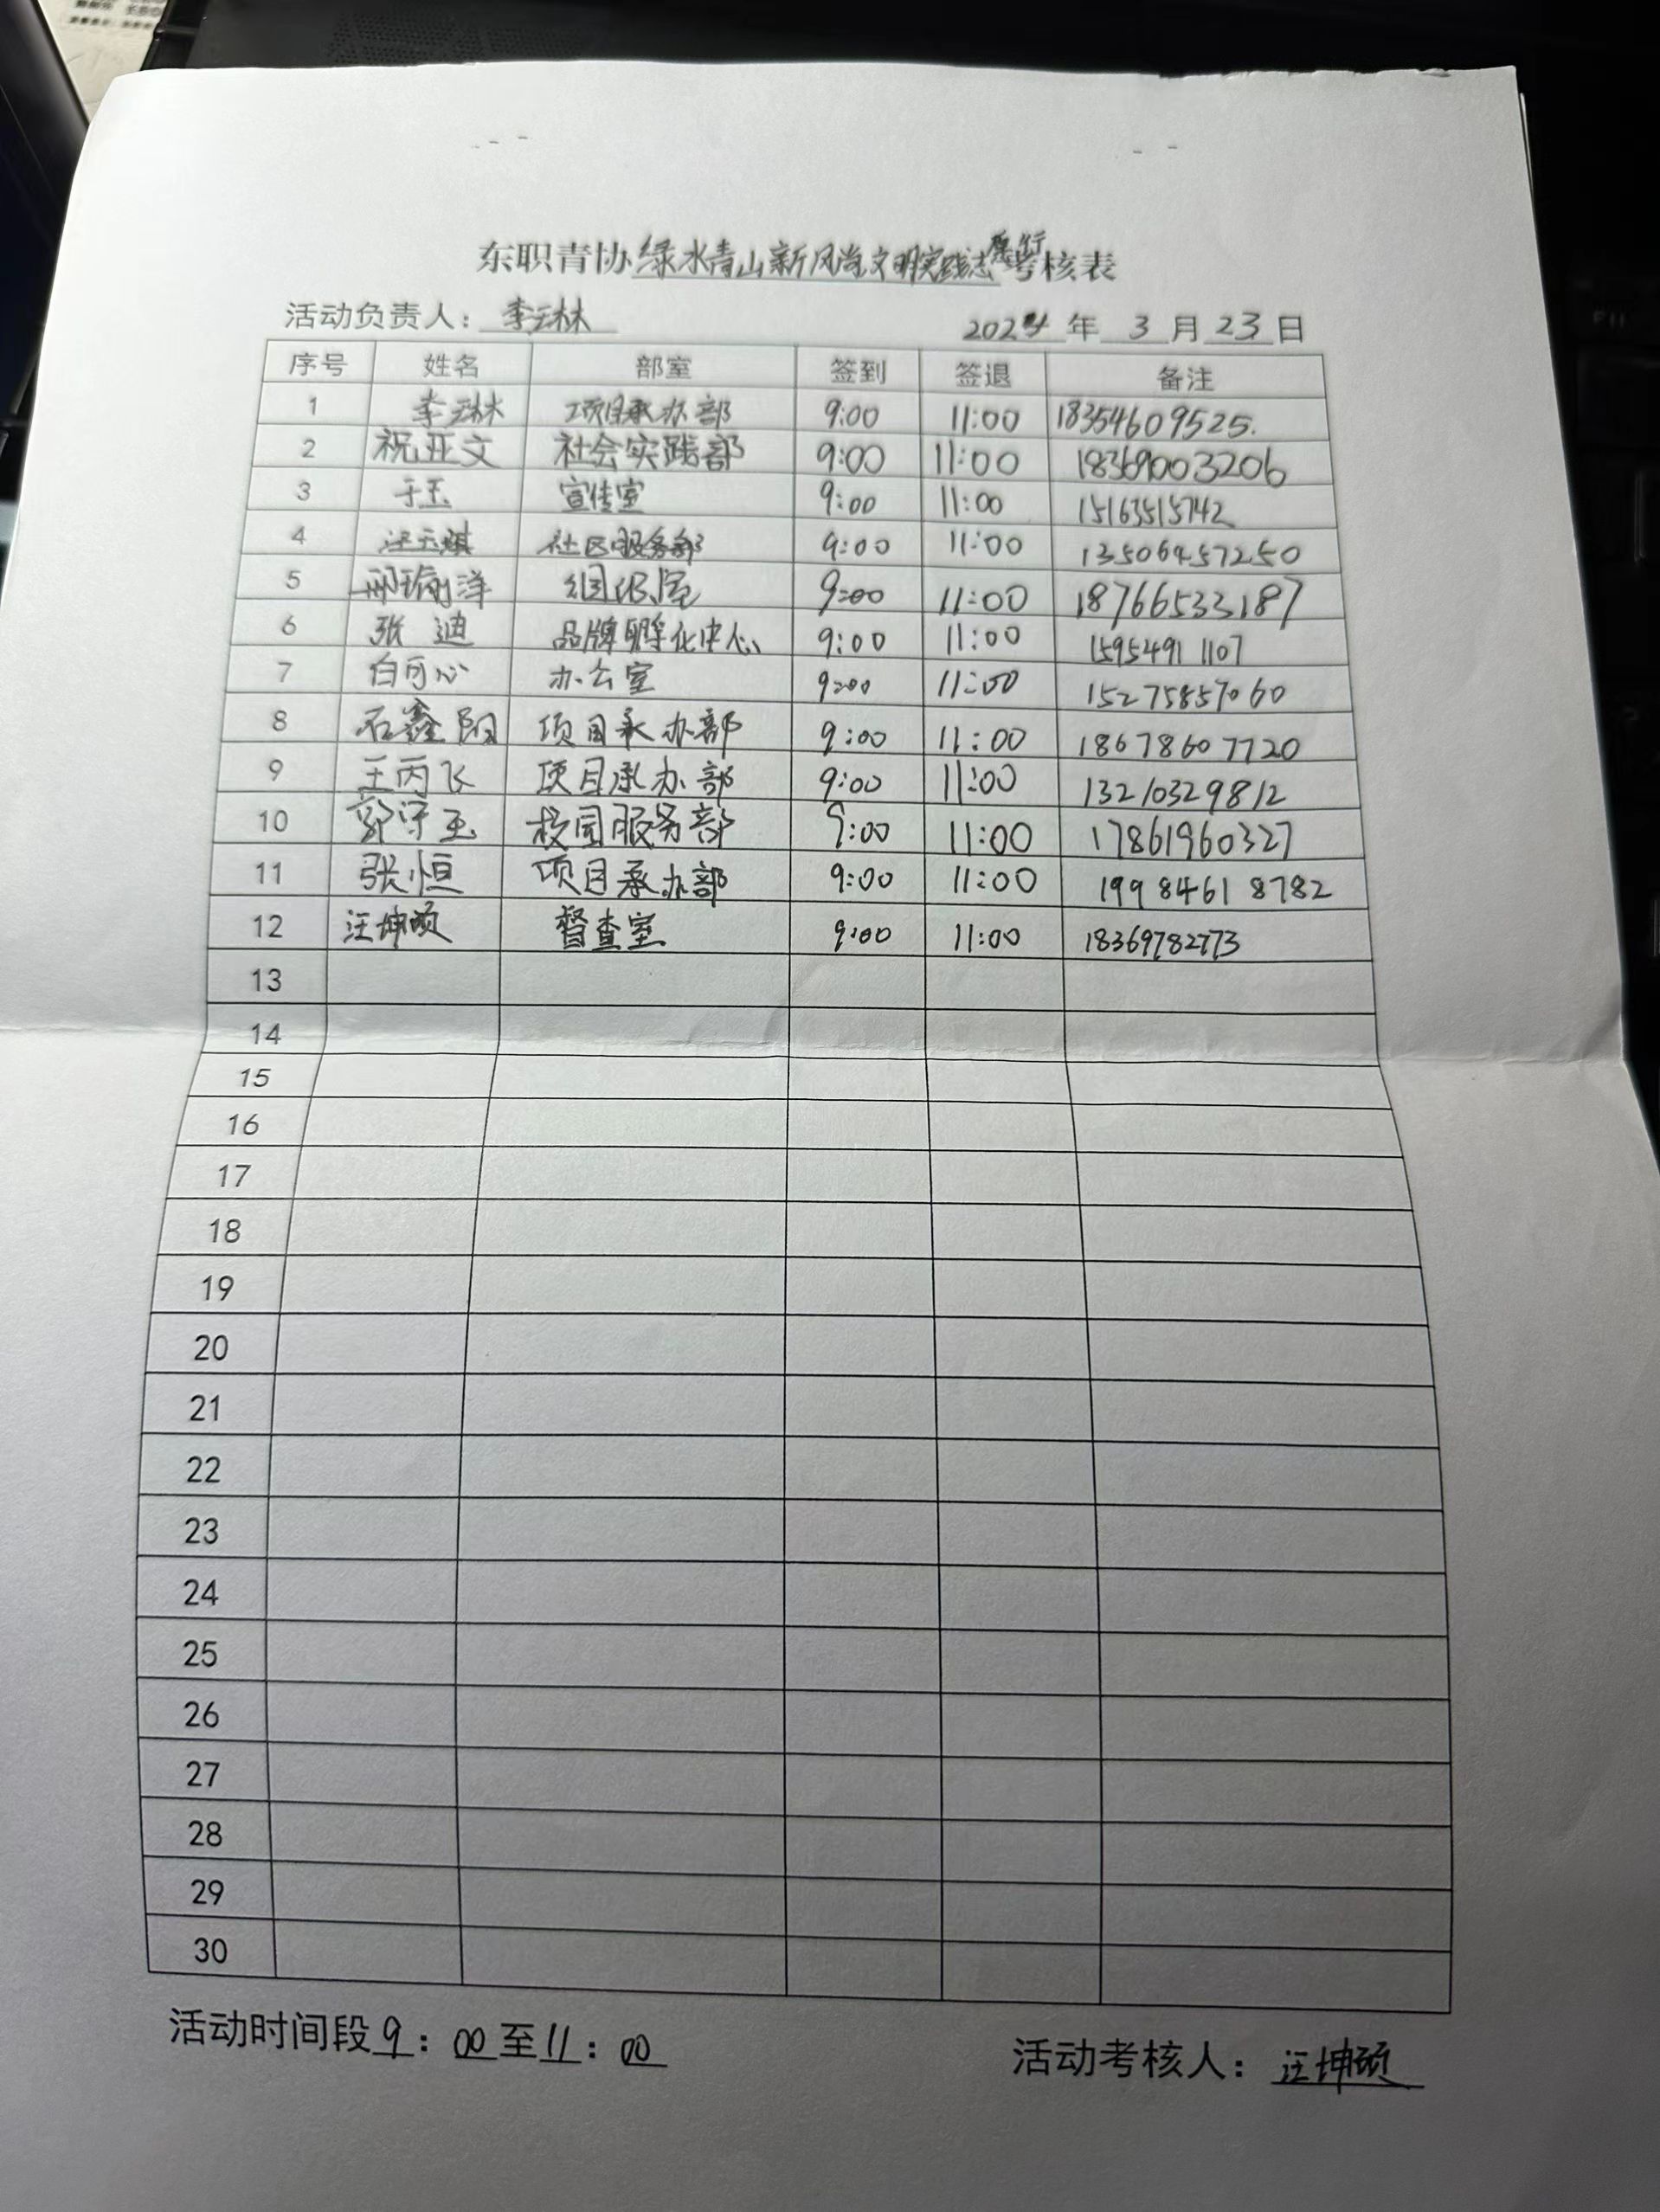 东职青协绿水青山新风尚文明实践志愿行考核表
活动负责人：李云林 2024年3月23日
序号 姓名 部室 签到 签退 备注
1 李云林 项目承办部 9:00 11:00 18354609525.
2 祝亚文 社会实践部 9:00 11:00 18369003206
3 于玉 宣传室 9:00 11:00 15163515742
4 社区服务部 9:00 11:00 13506457250
5 邢瑜洋 组织室 9:00 11:00 18766533187
6 张迪 品牌孵化中心 9:00 11:00 15954911107
7 白可心 办公室 9:00 11:00 15275857060
8 石鑫阳 项目承办部 9:00 11:00 18678607720
9 王丙飞 项目承办部 9:00 11:00 13210329812
10 郭守玉 校园服务部 9:00 11:00 17861960327
11 张恒 项目承办部 9:00 11:00 19984618782
12 汪坤硕 督查室 9:00 11:00 18369782773
13
14
15
16
17
18
19
20
21
22
23
24
25
26
27
28
29
30
活动时间段9：00至11：00 活动考核人：汪坤硕